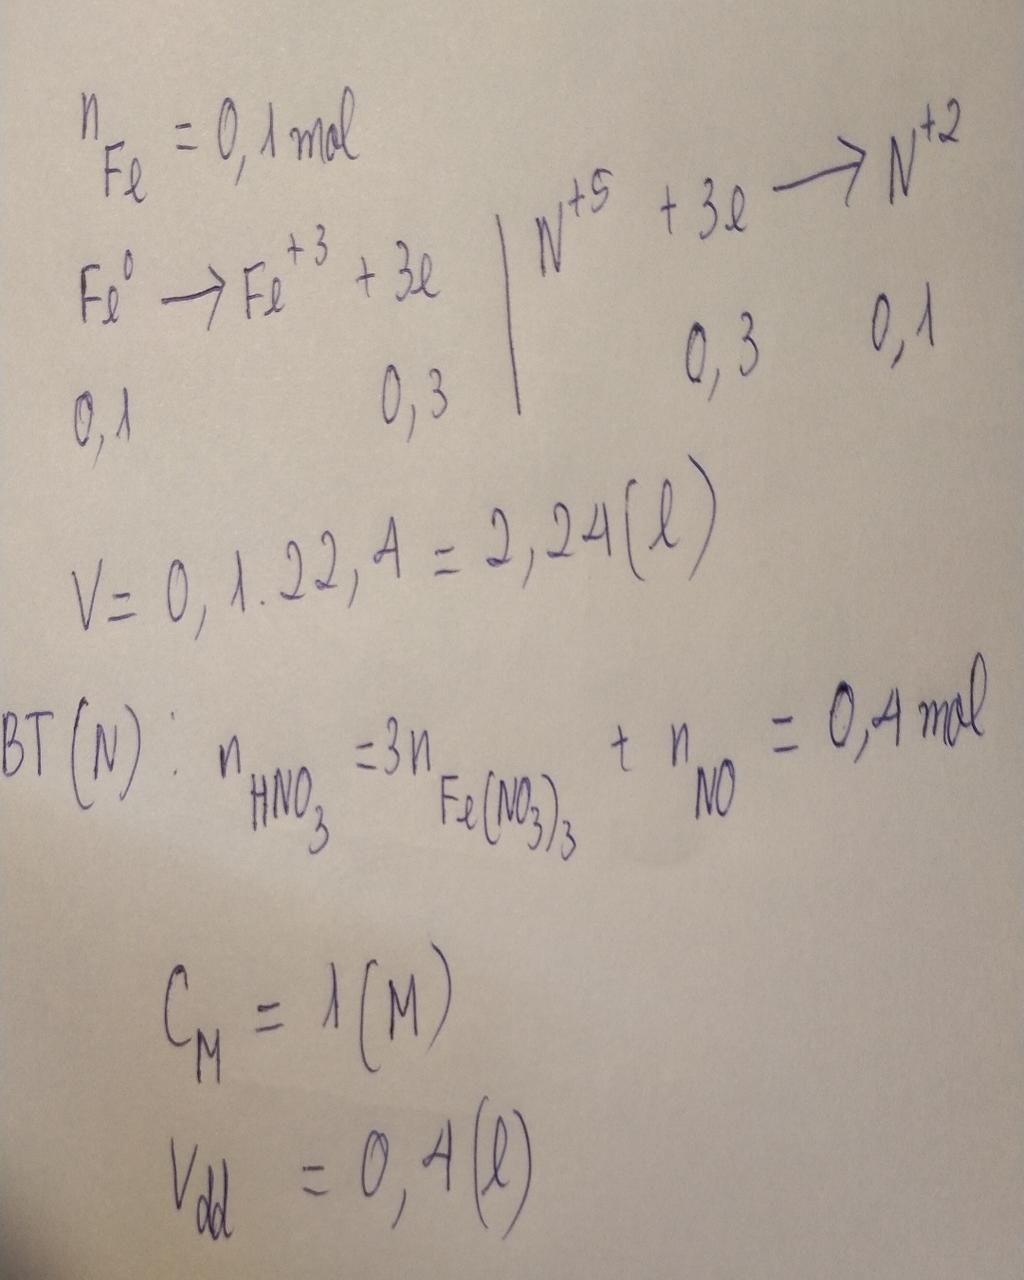 n_Fe = 0,1 mol
Fe⁰ → Fe⁺³ + 3e | N⁺⁵ + 3e → N⁺²
0,1 0,3 0,3 0,1
V = 0,1.22,4 = 2,24 (l)
BT (N) : n_HNO₃ = 3n_Fe(NO₃)₃ + n_NO = 0,4 mol
C_M = 1 (M)
V_dd = 0,4 (l)